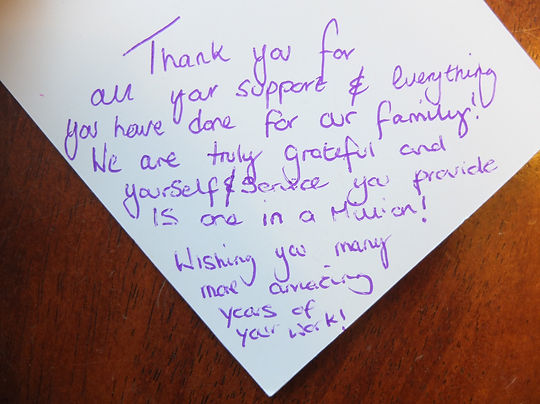 Thank you for
all your support & everything
you have done for our family!
We are truly grateful and
yourself & service you provide
is one in a Million!
Wishing you many
more amazing
years of
your work!